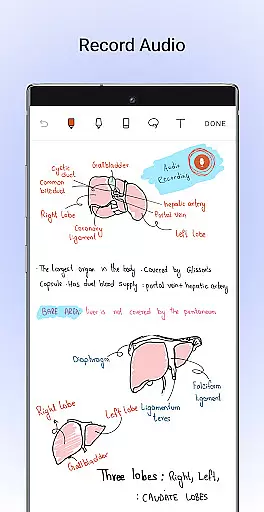 Record Audio
T DONE
Gallbladder
Cystic
duct
Common
bile duct
Audio
Recording
hepatic artery
Portal vein
Right lobe
Coronary
ligament
Left lobe
· The largest organ in the body · Covered by Glisson's
Capsule · Has dual blood supply : portal vein + hepatic artery
BARE AREA: liver is not covered by the peritoneum
Diaphragm
Falciform
ligament
Right lobe
Left lobe
Ligamentum
teres
Gallbladder
Three lobes : Right, Left,
: CAUDATE LOBES